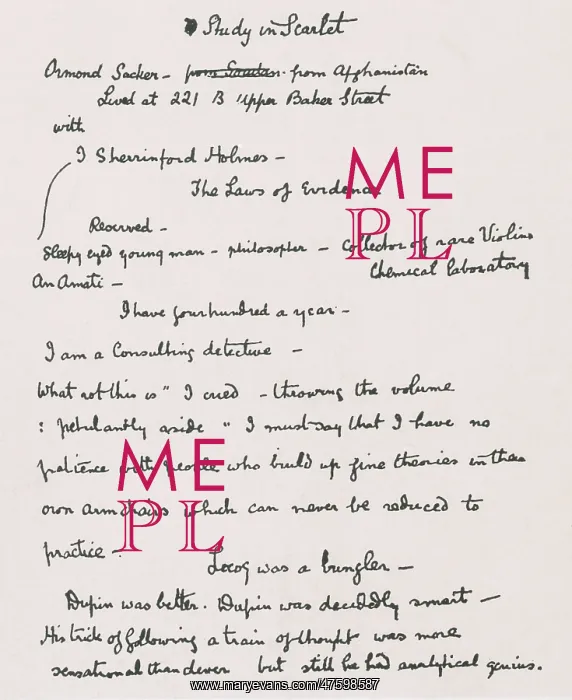 Study in Scarlet
Ormond Sacker – ~~from Soudan~~ from Afghanistan
Lived at 221 B Upper Baker Street
with
I Sherrinford Holmes –
The Laws of Evidence
Reserved –
Sleepy eyed young man – philosopher – Collector of rare Violins
An Amati –
Chemical laboratory
I have four hundred a year –
I am a Consulting detective –
What rot this is" I cried – throwing the volume
: petulantly aside " I must say that I have no
patience with people who build up fine theories in their
own armchairs which can never be reduced to
practice –
Lecoq was a bungler –
Dupin was better. Dupin was decidedly smart –
His trick of following a train of thought was more
sensational than clever but still he had analytical genius.
ME
PL
ME
PL
www.maryevans.com/47598587